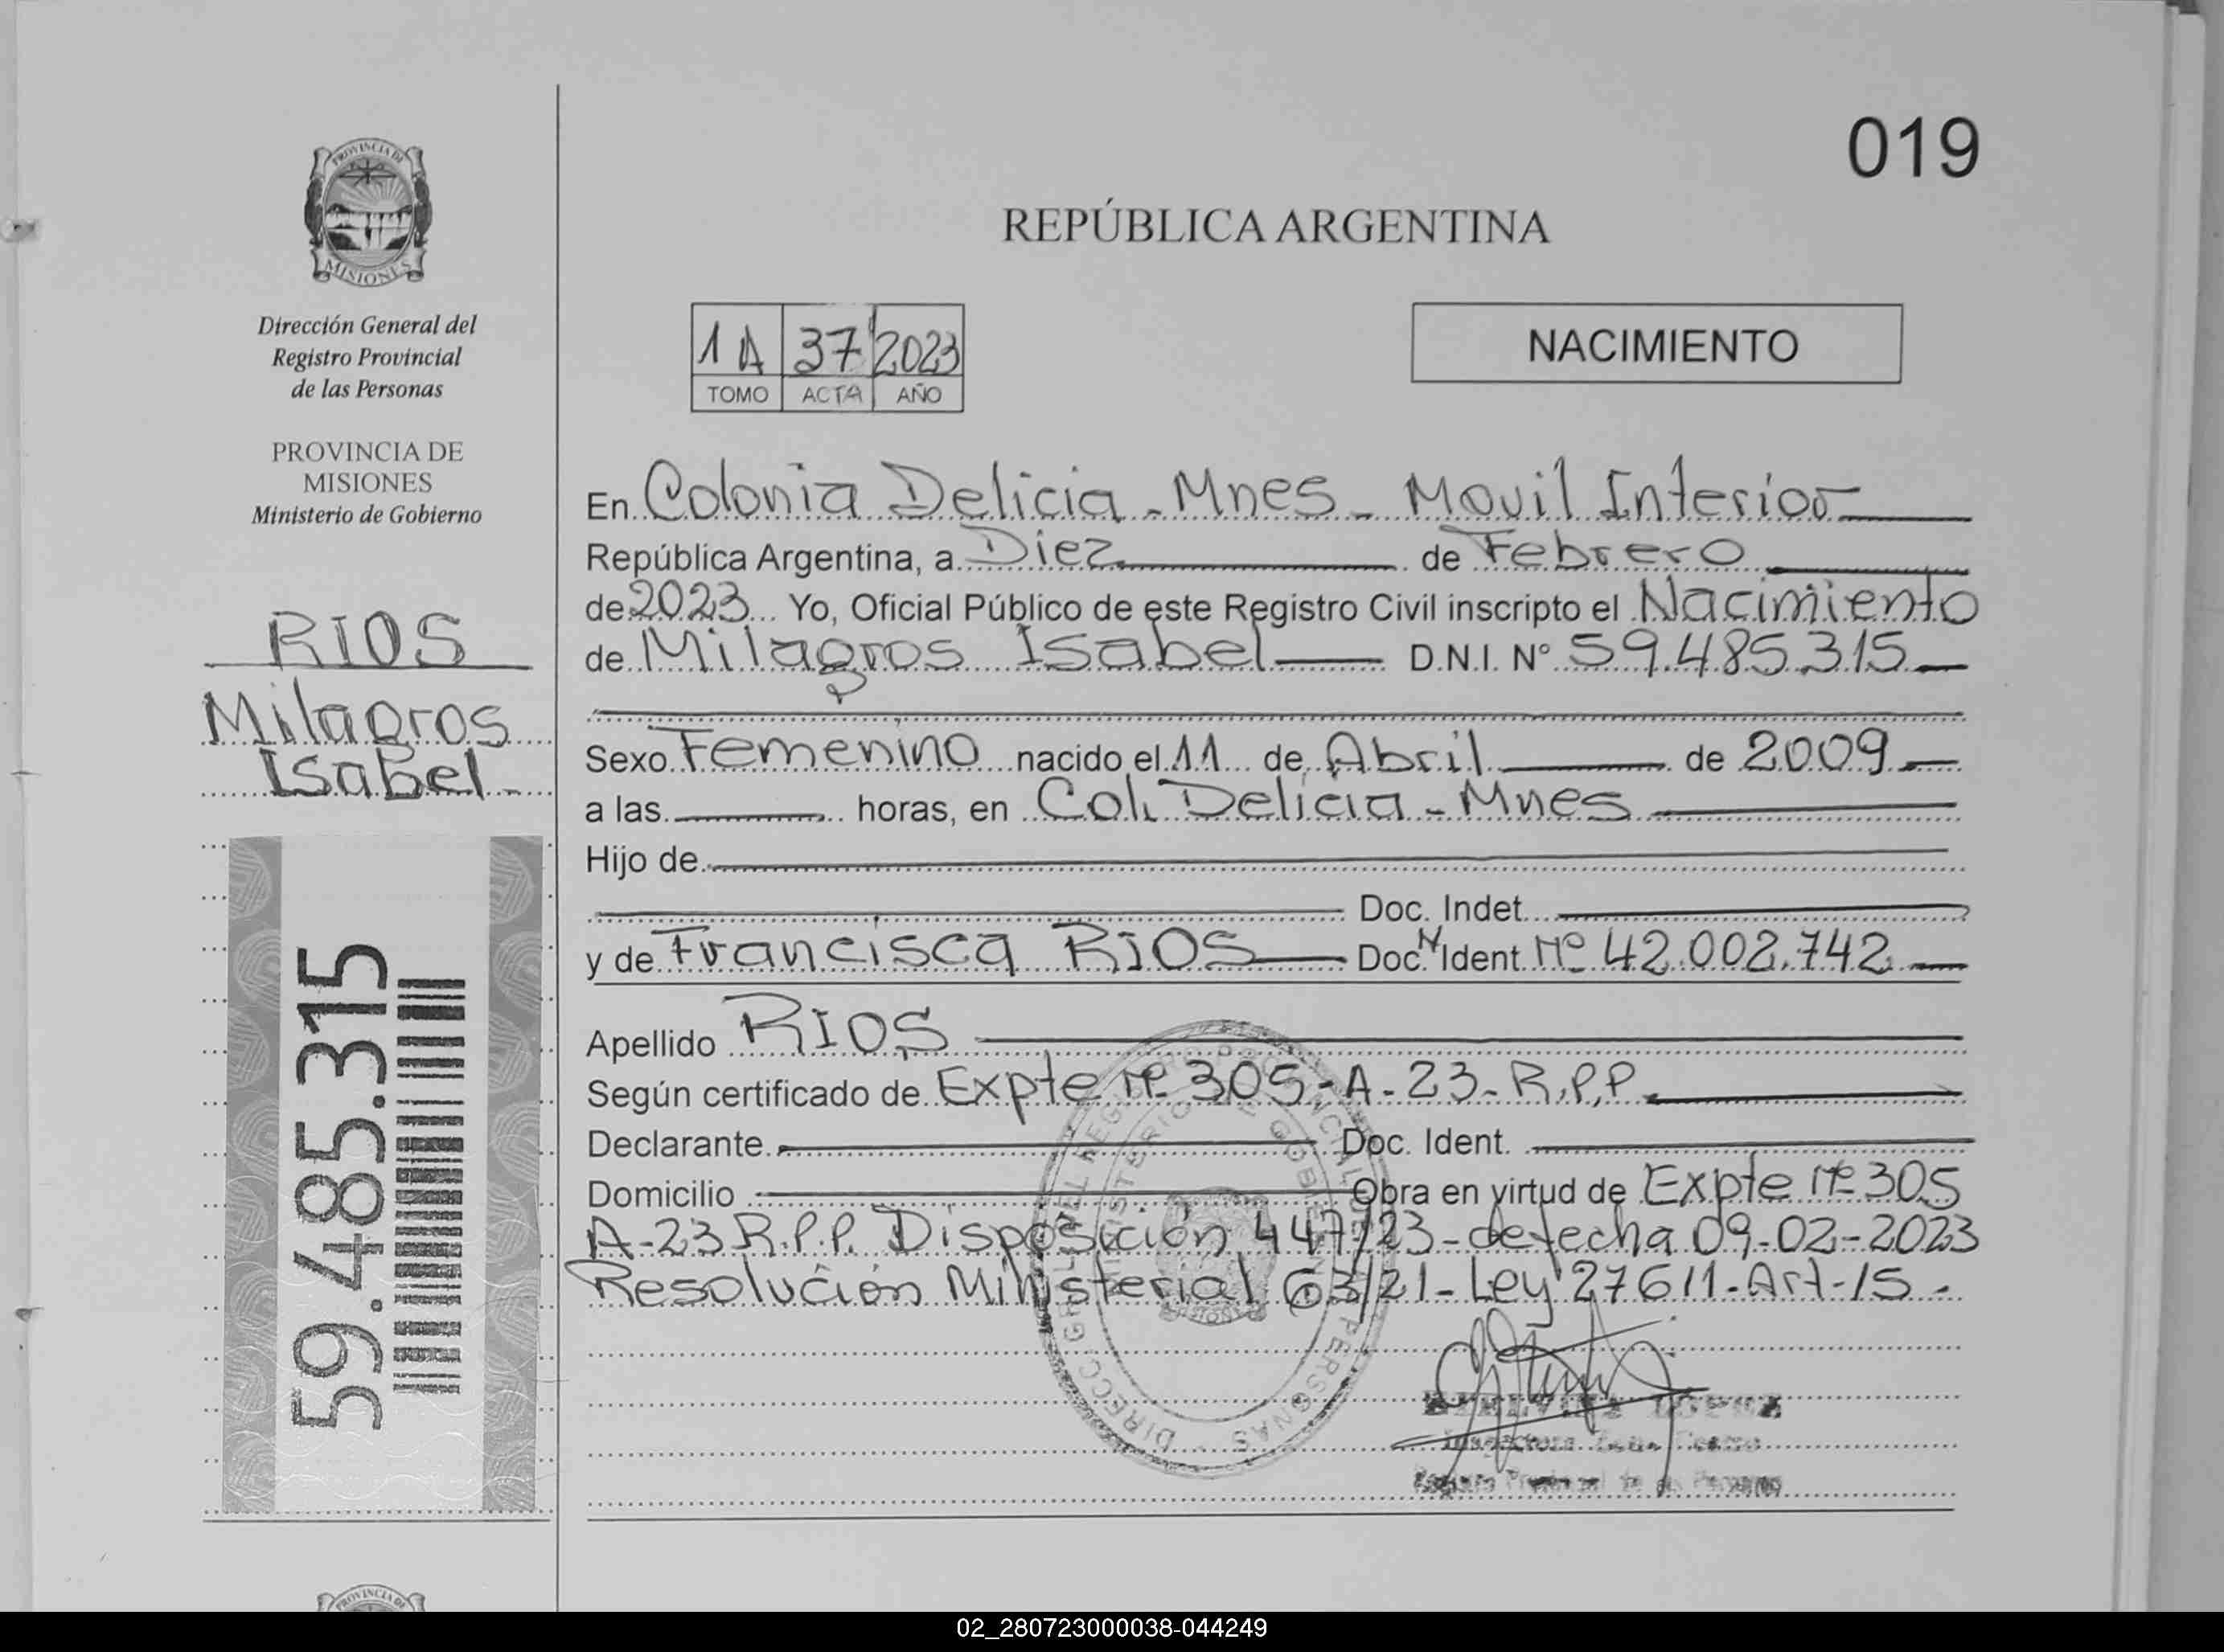 019
PROVINCIA DE
MISIONES
Dirección General del
Registro Provincial
de las Personas
PROVINCIA DE
MISIONES
Ministerio de Gobierno
RIOS
Milagros
Isabel
59.485.315
REPÚBLICA ARGENTINA
1A 37 2023
TOMO ACTA AÑO
NACIMIENTO
En Colonia Delicia - Mnes - Movil Interior
República Argentina, a Diez de Febrero
de 2023 Yo, Oficial Público de este Registro Civil inscripto el Nacimiento
de Milagros Isabel D.N.I. N° 59.485.315
Sexo Femenino nacido el 11 de Abril de 2009
a las horas, en Col. Delicia - Mnes
Hijo de
Doc. Indet.
y de Francisca RIOS Doc. N Ident. Nº 42.002.742
Apellido RIOS
Según certificado de Expte Nº 305-A-23-R.P.P.
Declarante Doc. Ident.
Domicilio Obra en virtud de Expte Nº 305
A-23 R.P.P. Disposición 447/23- de fecha 09-02-2023
Resolución Ministerial 63/21- Ley 27611-Art-15-
LOPEZ
PROVINCIA DE
02_280723000038-044249